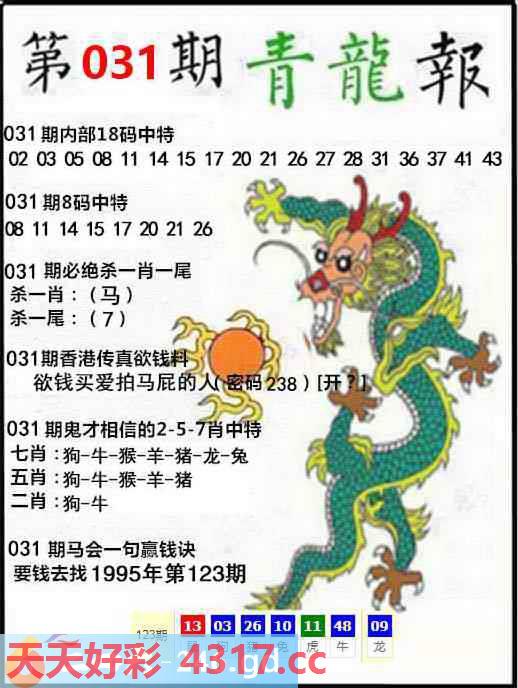 第031期青龍報
031期内部18码中特
02 03 05 08 11 14 15 17 20 21 26 27 28 31 36 37 41 43
031期8码中特
08 11 14 15 17 20 21 26
031期必绝杀一肖一尾
杀一肖：（马）
杀一尾：（7）
031期香港传真欲钱料
欲钱买爱拍马屁的人（密码238）[开？]
031期鬼才相信的2-5-7肖中特
七肖：狗-牛-猴-羊-猪-龙-兔
五肖：狗-牛-猴-羊-猪
二肖：狗-牛
031期马会一句赢钱诀
要钱去找1995年第123期
13 03 26 10 11 48 09
123期 鼠 狗 猪 兔 虎 牛 龙
天天好彩 4317.cc